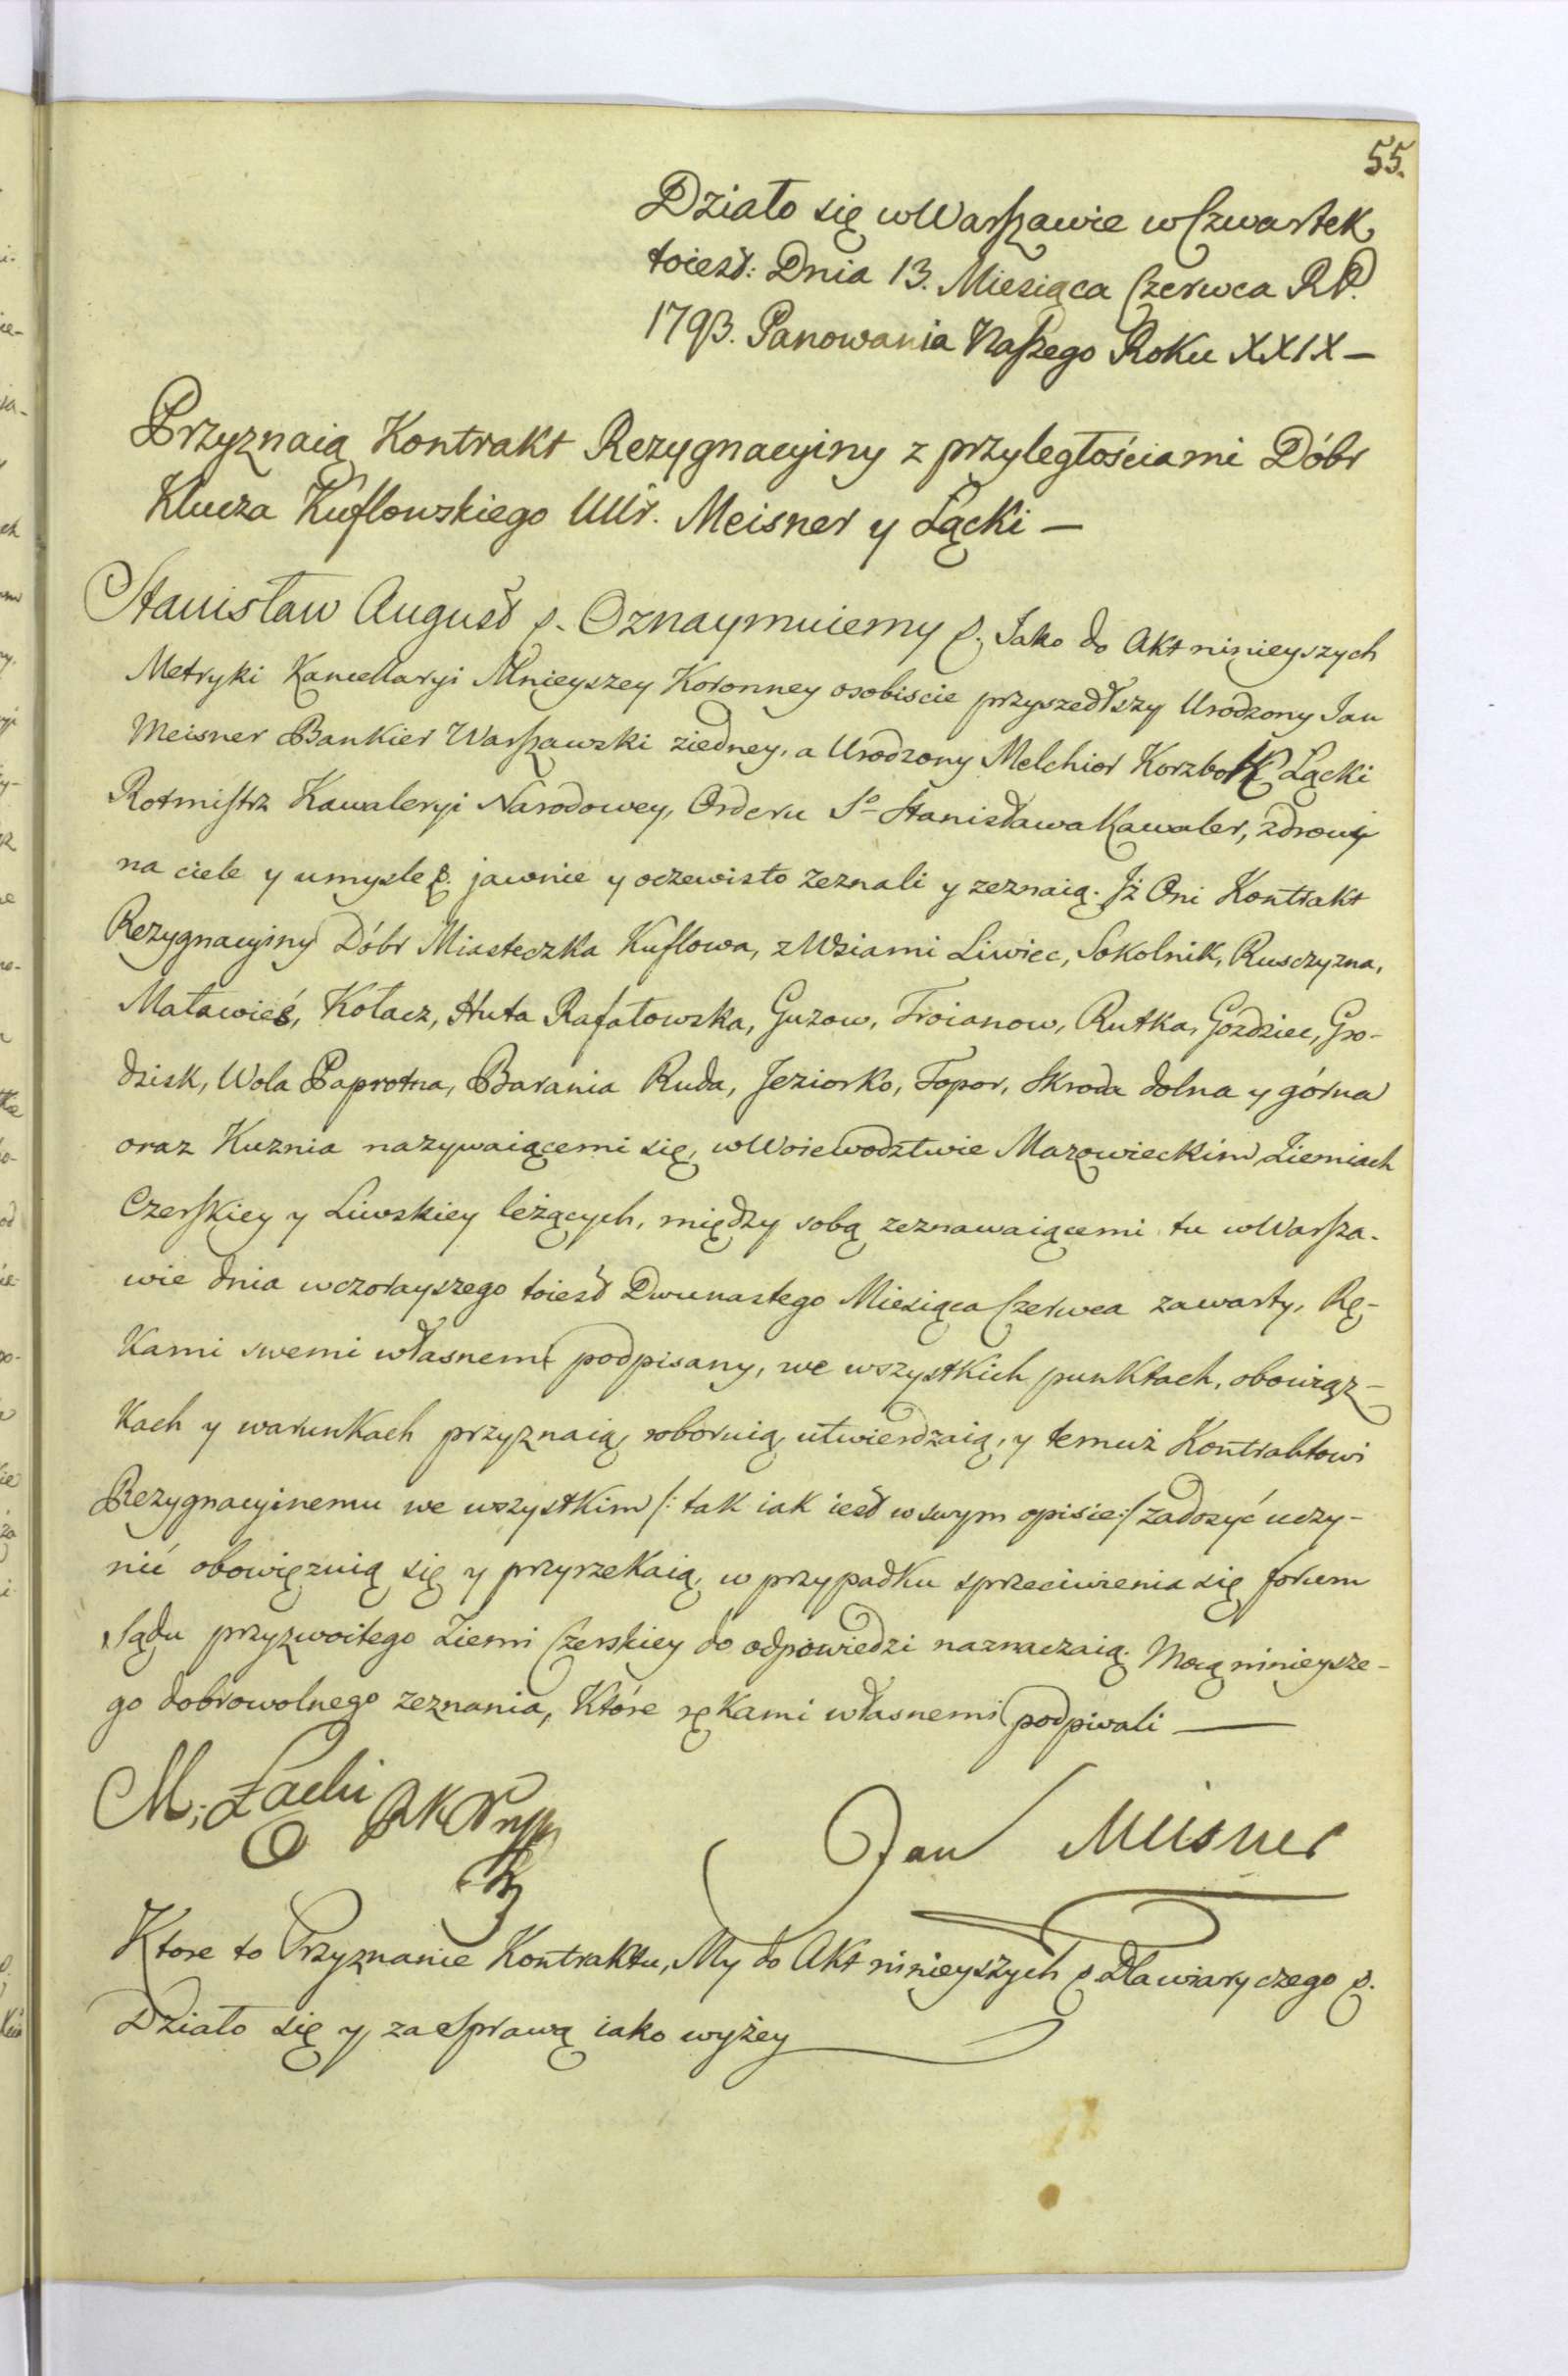 55.
Działo się w Warszawie w Czwartek
toiest: Dnia 13. Miesiąca Czerwca R.P.
1793. Panowania Naszego Roku XXIX —
Przyznaią Kontrakt Rezygnacyiny z przyległościami Dóbr
Klucza Kuflowskiego UUr. Meisner y Łącki —
Stanisław August p. Oznaymuiemy p. Jako do Akt ninieyszych
Metryki Kancellaryi Mnieyszey Koronney osobiscie przyszedłszy Urodzony Jan
Meisner Bankier Warszawski ziedney, a Urodzony Melchior Korzbok Łącki
Rotmistrz Kawaleryi Narodowey, Orderu So Stanisława Kawaler, zdrowi
na ciele y umysle p. jawnie y oczewisto zeznali y zeznaią. Jż Oni Kontrakt
Rezygnacyiny Dóbr Miasteczka Kuflowa, z Wsiami Liwiec, Sokolnik, Rusczyzna,
Maławieś, Kołacz, Huta Rafałowska, Guzow, Troianow, Rutka, Gozdziec, Gro-
dzisk, Wola Paprotna, Barania Ruda, Jeziorko, Topor, Skroda dolna y górna
oraz Kuznia nazywaiącemi się, w Woiewodztwie Mazowieckim Ziemiach
Czerskiey y Liwskiey leżących, między sobą zeznawaiącemi tu w Warsza-
wie dnia wczorayszego toiest Dwunastego Miesiąca Czerwca zawarty, Rę-
kami swemi własnemi podpisany, we wszystkich punktach, obowiąz-
kach y warunkach przyznaią, roboruią, utwierdzaią, y temuż Kontraktowi
Rezygnacyinemu we wszystkim /: tak iak iest w swym opisie :/ zadosyć uczy-
nić obowięzuią się y przyrzekaią, w przypadku sprzeciwienia się forum
Sądu przyzwoitego Ziemi Czerskiey do odpowiedzi naznaczaią. Mocą ninieysze-
go dobrowolnego zeznania, które rękami własnemi podpisali —
M; Łacki RKN
Jan Meisner
Ktore to Przyznanie Kontraktu, My do Akt ninieyszych p. Dla wiary czego p.
Działo się y za Sprawą iako wyżey